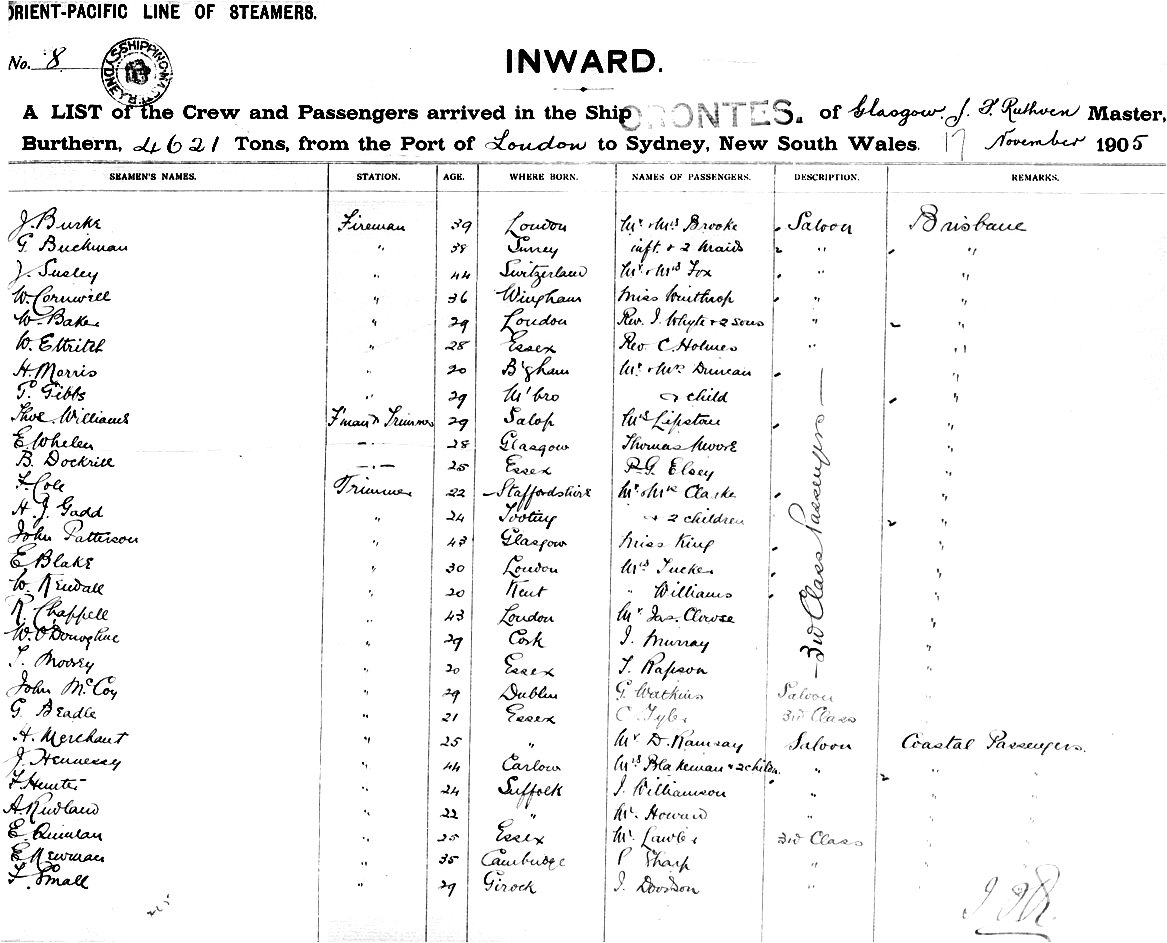 ORIENT-PACIFIC LINE OF STEAMERS.
No. 8
SYDNEY SHIPPING MASTER
INWARD.
A LIST of the Crew and Passengers arrived in the Ship ORONTES. of Glasgow, J. F. Ruthven Master,
Burthern, 4621 Tons, from the Port of London to Sydney, New South Wales. 17 November 1905
SEAMEN'S NAMES. STATION. AGE. WHERE BORN. NAMES OF PASSENGERS. DESCRIPTION. REMARKS.
J. Burke Fireman 39 London Mr & Mrs Brooke Saloon Brisbane
G. Buckman " 38 Surrey inft & 2 maids " "
J. Susley " 44 Switzerland Mr & Mrs Fox " "
W. Cornwell " 36 Wingham Miss Winthrop " "
W. Baker " 29 London Rev. J. Whyte & 2 sons " "
W. Ettritch " 28 Essex Rev. C. Holmes " "
H. Morris " 20 B'gham Mr & Mrs Duncan "
T. Gibbs " 29 M'bro & child "
Thos. Williams F'man & Trimmer 29 Salop Mrs Lipstone "
E. Whelen -"- 28 Glasgow Thomas Moore "
B. Dockrill -"- 25 Essex P. G. Elsey "
F. Cole Trimmer 22 Staffordshire Mr & Mrs Clarke "
H. J. Gadd " 24 Tooting & 2 children "
John Patterson " 43 Glasgow Miss King "
E. Blake " 30 London Mrs Tucker "
W. Kendall " 20 Kent " Williams "
R. Chappell " 43 London Mr Jas. Clowse "
W. O'Donoghue " 29 Cork J. Murray "
T. Moorey " 20 Essex T. Rapson "
3rd Class Passengers
John McCoy " 29 Dublin G. Watkins Saloon "
G. Beadle " 21 Essex C. Tyler 3rd Class "
H. Merchant " 25 " Mr D. Ramsay Saloon Coastal Passengers.
J. Hennessy " 44 Carlow Mrs Blakeman & 2 chilen. " "
F. Hunter " 24 Suffolk J. Williamson " "
A. Rudland " 22 " Mr. Howard " "
E. Quinlan " 25 Essex Mr. Lawler 3rd Class "
E. Newman " 35 Cambridge P. Sharp " "
F. Small " 29 Girock J. Dodson "